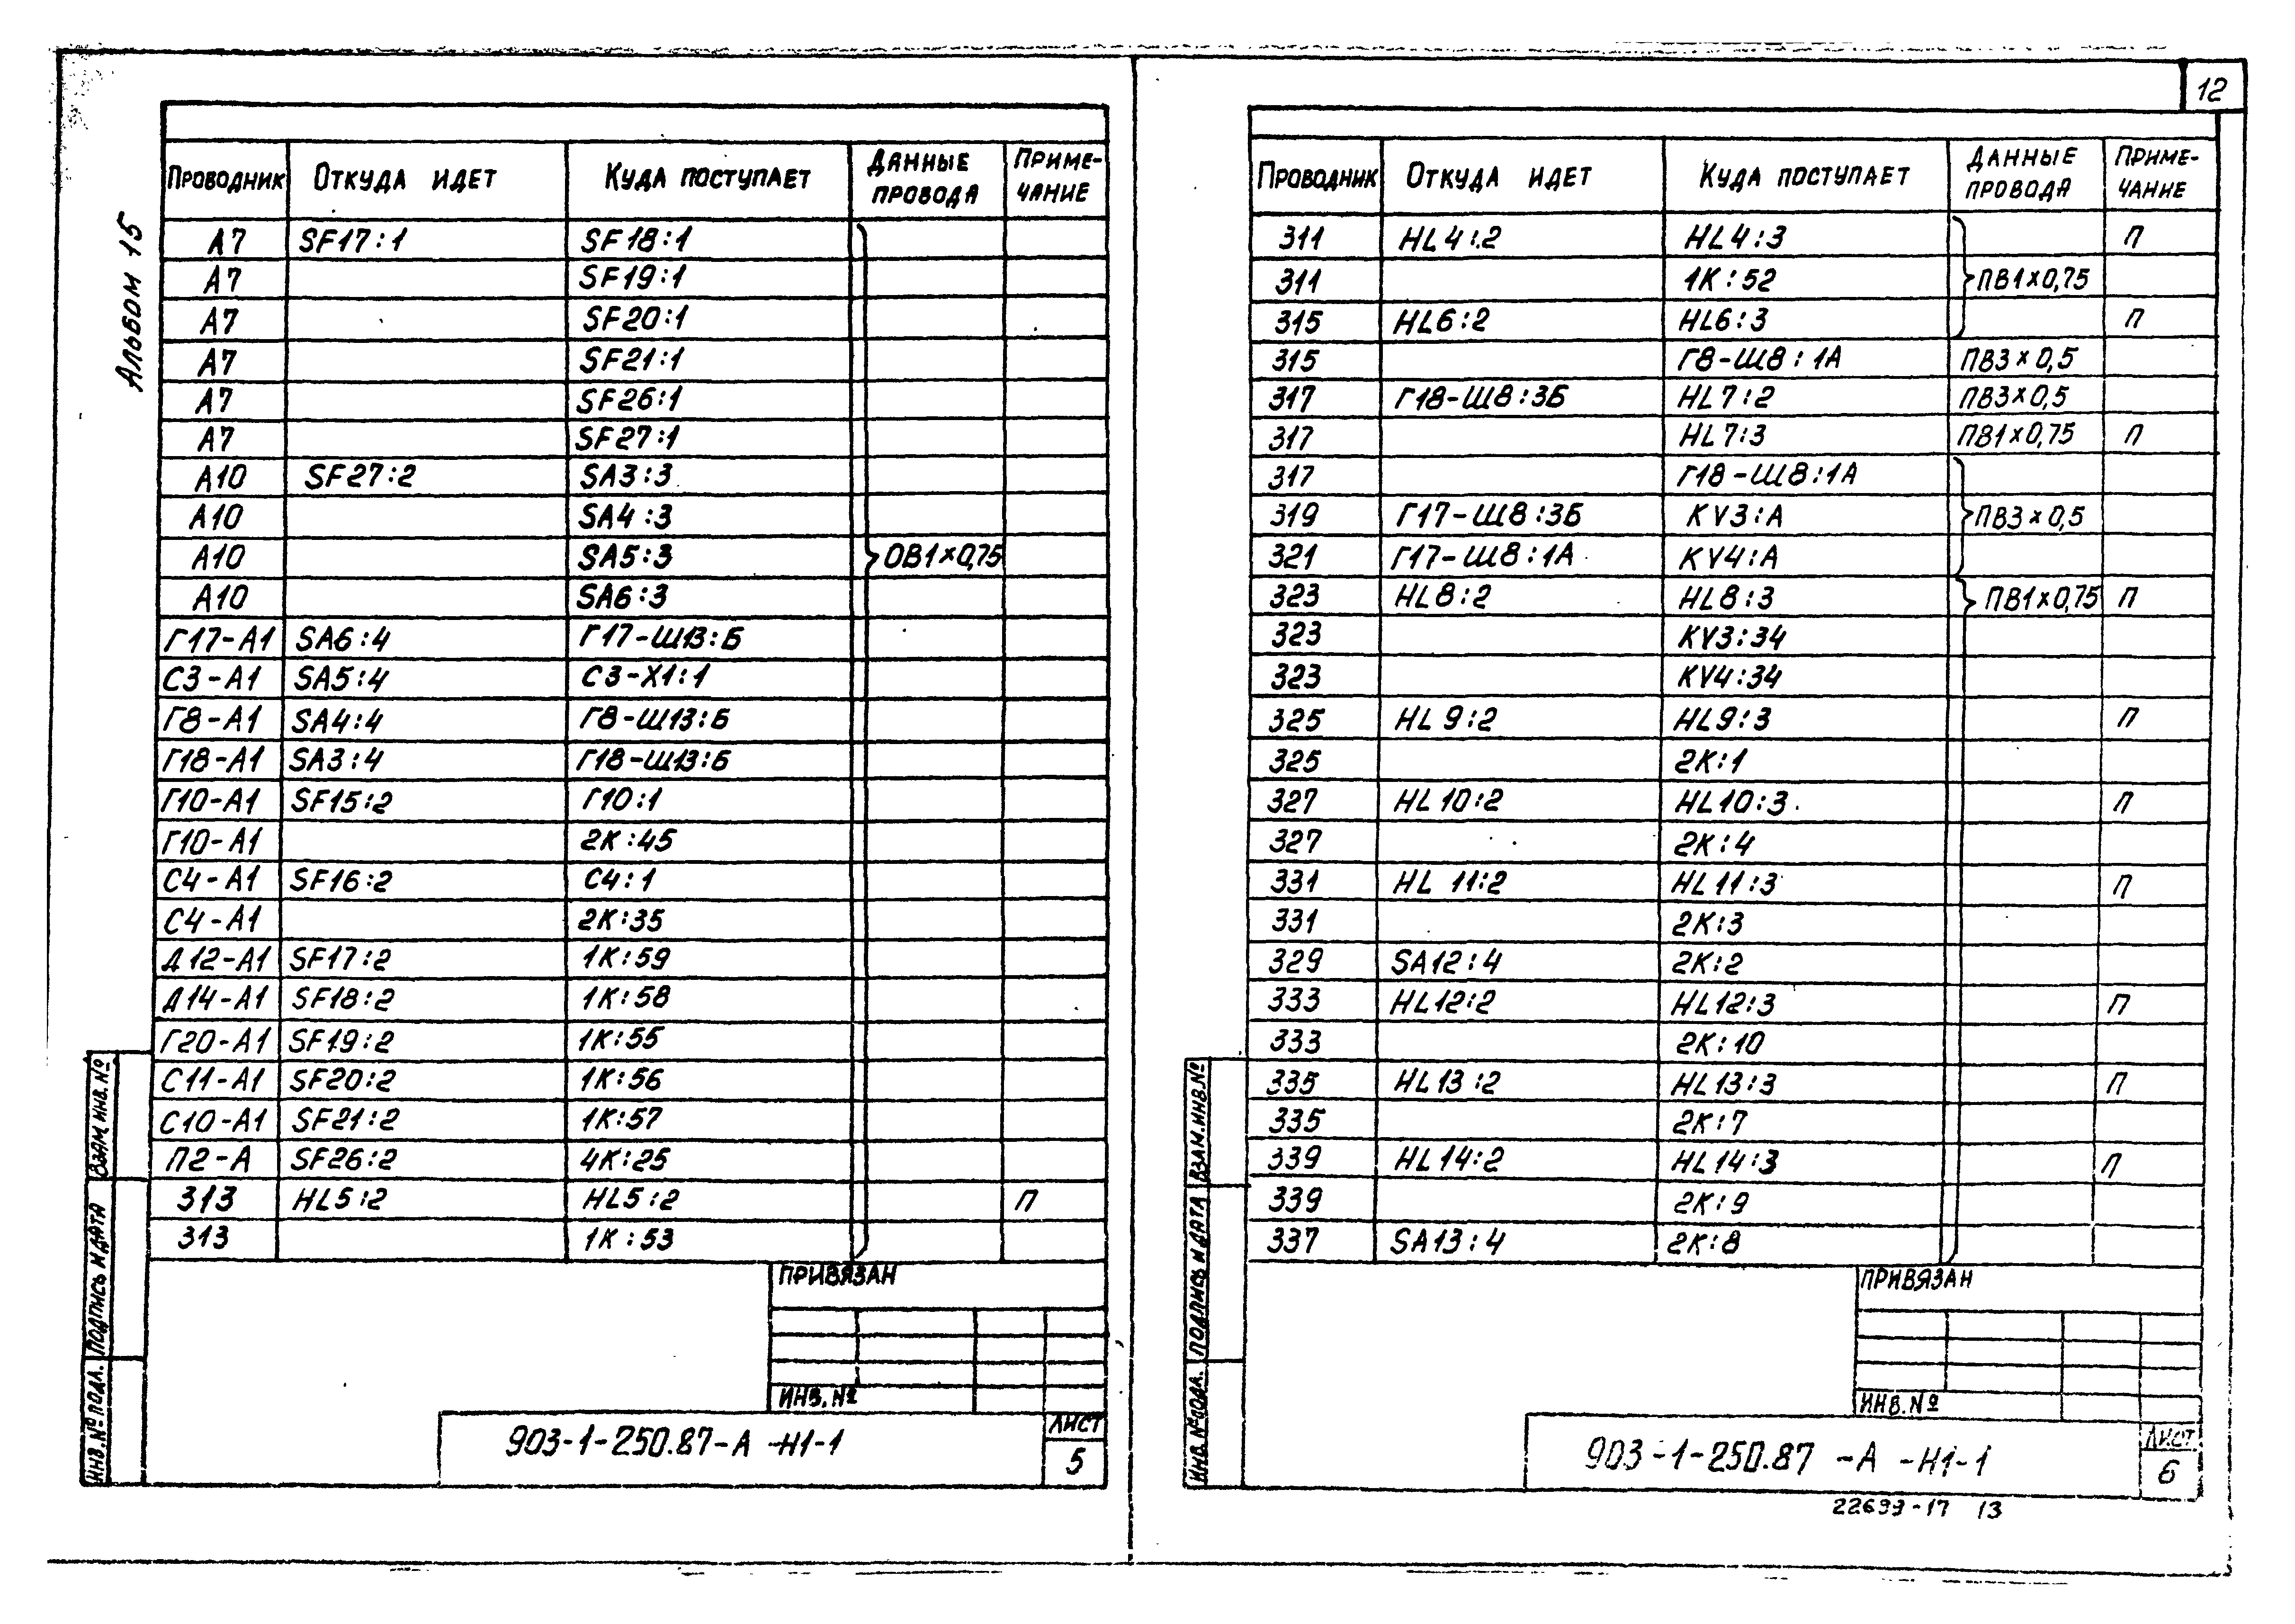 12
Альбом 15
Проводник Откуда идет Куда поступает Данные провода Примечание
А7 SF17:1 SF18:1
А7 SF19:1
А7 SF20:1
А7 SF21:1
А7 SF26:1
А7 SF27:1
А10 SF27:2 SA3:3
А10 SA4:3
А10 SA5:3 ОВ1×0,75
А10 SA6:3
Г17-А1 SA6:4 Г17-Ш13:Б
С3-А1 SA5:4 С3-Х1:1
Г8-А1 SA4:4 Г8-Ш13:Б
Г18-А1 SA3:4 Г18-Ш13:Б
Г10-А1 SF15:2 Г10:1
Г10-А1 2К:45
С4-А1 SF16:2 С4:1
С4-А1 2К:35
Д12-А1 SF17:2 1К:59
Д14-А1 SF18:2 1К:58
Г20-А1 SF19:2 1К:55
С11-А1 SF20:2 1К:56
С10-А1 SF21:2 1К:57
П2-А SF26:2 4К:25
313 HL5:2 HL5:2 П
313 1К:53
Привязан
Инв. №
903-1-250.87-А-Н1-1
Лист
5
Взам. инв. №
Подпись и дата
Инв. № подл.
Проводник Откуда идет Куда поступает Данные провода Примечание
311 HL4:2 HL4:3 П
311 1К:52 ПВ1×0,75
315 HL6:2 HL6:3 П
315 Г8-Ш8:1А ПВ3×0,5
317 Г18-Ш8:3Б HL7:2 ПВ3×0,5
317 HL7:3 ПВ1×0,75 П
317 Г18-Ш8:1А
319 Г17-Ш8:3Б KV3:А ПВ3×0,5
321 Г17-Ш8:1А KV4:А
323 HL8:2 HL8:3 ПВ1×0,75 П
323 KV3:34
323 KV4:34
325 HL9:2 HL9:3 П
325 2К:1
327 HL10:2 HL10:3 П
327 2К:4
331 HL11:2 HL11:3 П
331 2К:3
329 SA12:4 2К:2
333 HL12:2 HL12:3 П
333 2К:10
335 HL13:2 HL13:3 П
335 2К:7
339 HL14:2 HL14:3 П
339 2К:9
337 SA13:4 2К:8
Привязан
Инв. №
903-1-250.87-А-Н1-1
Лист
6
Взам. инв. №
Подпись и дата
Инв. № подл.
22699-17 13